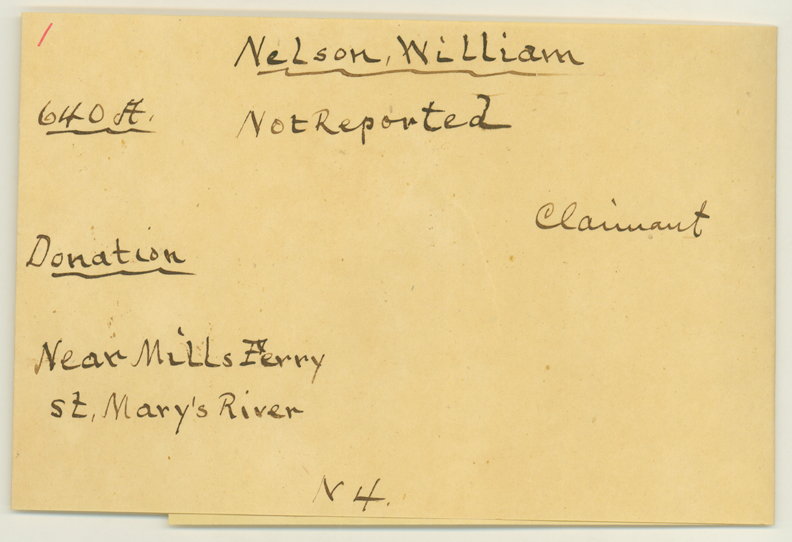 /
Nelson, William
640 A.
Not Reported
Claimant
Donation
Near Mills Ferry
St, Mary's River
N 4.